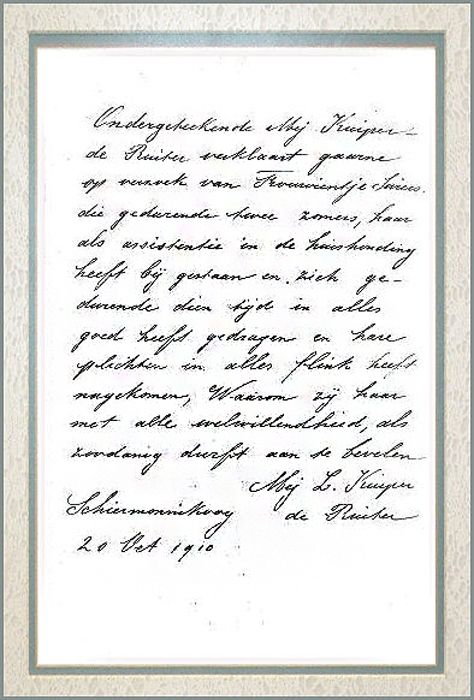 Ondergeteekende Mej Kuiper-
de Ruiter verklaart gaarne
op verzoek van Trouwientje
die gedurende twee zomers, haar
als assistentie in de huishouding
heeft bij gestaan en zich ge-
durende dien tijd in alles
goed heeft gedragen en hare
plichten in alles flink heeft
nagekomen, Waarom zij haar
met alle welwillendheid, als
zoodanig durft aan te bevelen
Mej L. Kuiper
Schiermonnikoog de Ruiter
20 Oct 1910